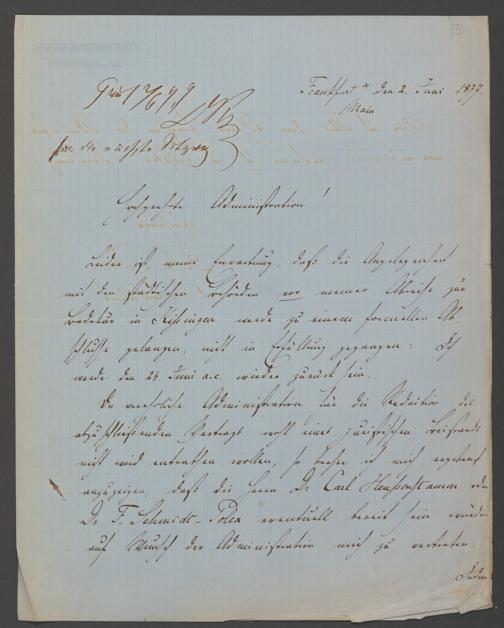 Frankfurt a/ den 2. Juni 1877.
Main
für die nächste Sitzung
Hochgeehrte Administration!
Leider ist meine Erwartung, daß die Angelegenheit
mit den städtischen Behörden vor meiner Abreise zur
Badekur in Kissingen werde zu einem formellen Ab
schlusse gelangen, nicht in Erfüllung gegangen. Ich
werde den 24. Juni a.c. wieder zurück sein.
Da verehrliche Administration für die Redaktion des
abzuschließenden Vertrags wohl eines juristischen Beistands
nicht wird entrathen wollen, so beehre ich mich ergebenst
anzuzeigen, daß die Herrn Dr. Carl oder
Dr. F. Schmidt-Polex eventuell bereit sein würden
auf Wunsch der Administration mich zu vertreten.